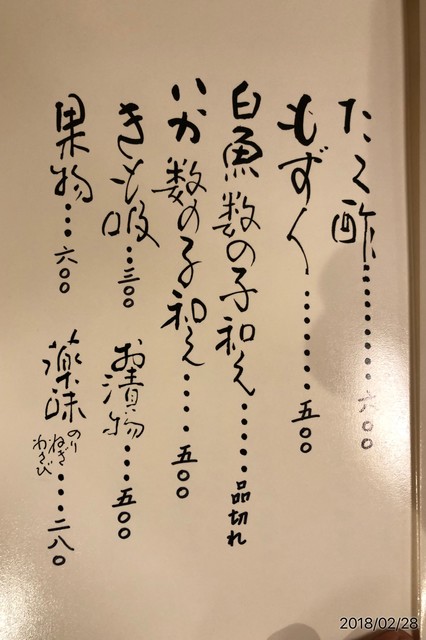 たこ酢………六〇〇
もずく………五〇〇
白魚数の子和え……品切れ
いか数の子和え……五〇〇
きも吸…三〇〇
お漬物…五〇〇
果物…六〇〇
薬味 のり ねぎ わさび …二八〇
2018/02/28